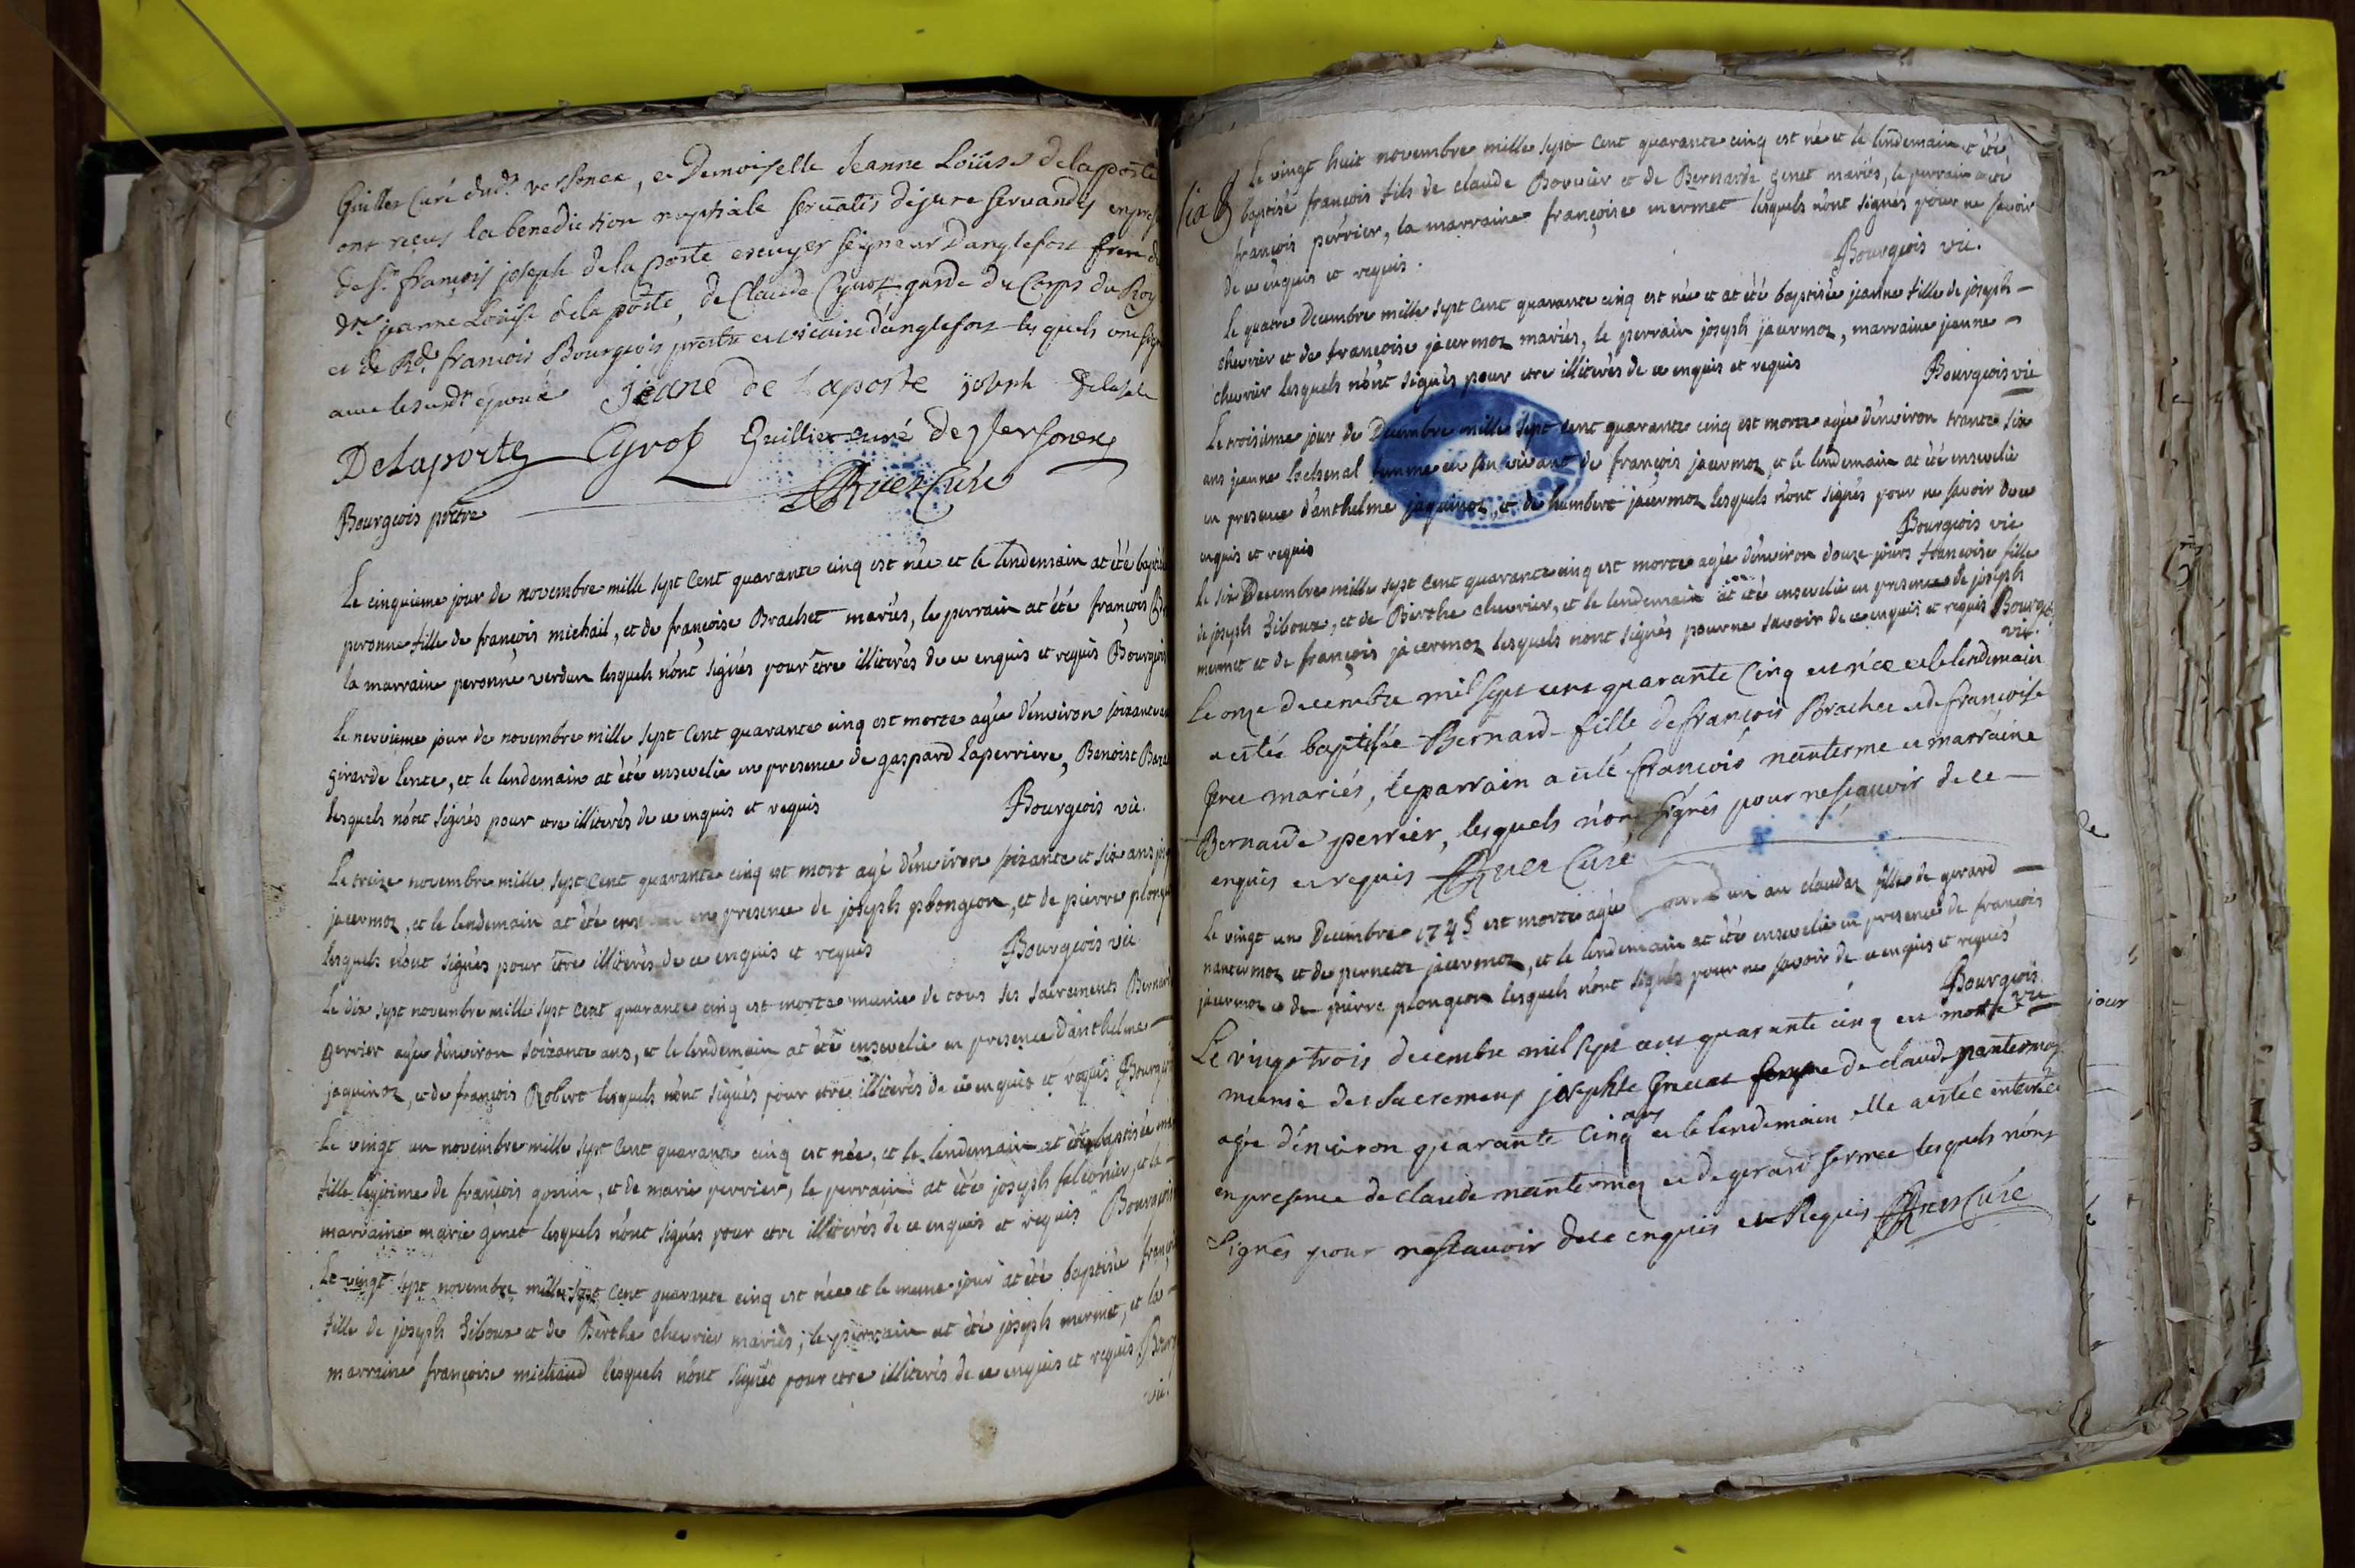 Guillier Curé dud.t versonex, et Demoiselle Jeanne Loüise delaporte
ont reçus la benediction nuptiale servatis dejure servandis en pres
de s.r françois joseph dela porte escuyer seigneur Danglefort frere d
d.lle jeanne Loüise dela porte, de Claude Cyrot garde du Corps du Roy
et de R.d françois Bourgeois prestre et vicaire d'anglefort les quels ont sig
avec lesusd.t épouse Jeane de Laporte joseph Delaporte
Delaporte Cyrot Guillier curé de Versonex
Bourgeois prêtre Ruer Curé
Le cinquieme jour de novembre mille sept cent quarante cinq est née et le lendemain at été baptisée
peronne fille de françois michail, et de françoise Brachet mariés, le perrain at été françois B
la marraine peronne verdun lesquels n'ont signés pour être illiterés de ce enquis et requis Bourgeois
Le neuvieme jour de novembre mille sept cent quarante cinq est morte agée d'environ soixante
girarde lente, et le lendemain at été ensevelie en presence de gaspard Laperriere, Benoist
lesquels n'ont signés pour etre illiterés de ce enquis et requis Bourgeois vic.
Le treize novembre mille sept cent quarante cinq est mort agé d'environ soixante et six ans
jacermoz, et le lendemain at été ens en presence de joseph plongeon, et de pierre plong
lesquels n'ont signés pour être illiterés de ce enquis et requis Bourgeois vic
Le dix sept novembre mille sept cent quarante cinq est morte munie de tous ses sacrements Bernard
perrier agée d'environ soixante ans, et le lendemain at été ensevelie en presence D'anthelme
jaquinoz, et de françois Robert lesquels n'ont signés pour etre illiterés de ce enquis et requis Bourg
Le vingt un novembre mille sept cent quarante cinq est née, et le lendemain at été baptisée
fille legitime de françois gonin, et de marie perrier, le perrain at été joseph falconier, et la
marraine marie genet lesquels n'ont signés pour etre illiterés de ce enquis et requis Bourgeois
Le vingt sept novembre mille sept cent quarante cinq est née et le meme jour at été baptisée franç
fille de joseph Siboux et de Berthe chevrier mariés; le perrain at été joseph mermet, et la
marraine françoise michaud lesquels n'ont signés pour etre illiterés de ce enquis et requis Bourg
vic.
Le vingt huit novembre mille sept cent quarante cinq est né et le lendemain a été
baptisé françois fils de claude Bouvier et de Bernarde genet mariés, le perrain a été
françois perrier, la marraine françoise mermet lesquels n'ont signés pour ne savoir
de ce enquis et requis. Bourgeois vic.
Le quatre Decembre mille sept cent quarante cinq est née et at été baptisée jeanne fille de joseph
chevrier et de françoise jacermoz mariés, le perrain joseph jacermoz, marraine jeanne
chevrier lesquels n'ont signés pour etre illiterés de ce enquis et requis Bourgeois vic
Le troisieme jour de Decembre mille sept cent quarante cinq est morte agée d'environ trante six
ans jeanne Lachenal femme en son vivant de françois jacermoz, et le lendemain at été ensevelie
en presence d'anthelme jaquinoz, et de humbert jacermoz lesquels n'ont signés pour ne savoir de ce
enquis et requis Bourgeois vic
Le six Decembre mille sept cent quarante cinq est morte agée d'environ douze jours françoise fille
de joseph Siboux, et de Berthe chevrier, et le lendemain at été ensevelie en presence de joseph
mermet et de françois jacermoz lesquels n'ont signés pour ne savoir de ce enquis et requis Bourg
vic.
Le onze decembre mil sept cent quarante Cinq est née et le lendemain
a estée baptisée Bernard fille de françois Brachet et de françoise
mariés, le parrain a esté françois nanterme et marraine
Bernarde perrier, lesquels n'ont signés pour ne sçavoir de ce
enquis et requis Ruer Curé
Le vingt un Decembre 1745 est morte agée un an claudaz fille de gerard
nantermoz et de pernette jacermoz, et le lendemain at été ensevelie en presence de françois
jacermoz et de pierre plongeon lesquels n'ont signés pour ne savoir de ce enquis et requis
Bourgeois vic
Le vingt trois decembre mil sept cent quarante cinq est morte
munie des sacremens josephte femme de claude nantermoz
agée d'environ quarante Cinq ans et le lendemain elle a estée enterrée
en presence de claude nantermoz et de gerard fermee lesquels n'ont
signés pour ne sçavoir de ce enquis et Requis Ruer Curé
jour